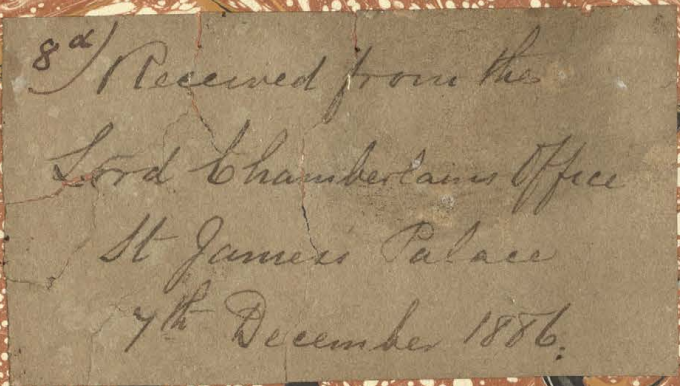 8d) Received from the
Lord Chamberlains Office
St James's Palace
7th December 1886.